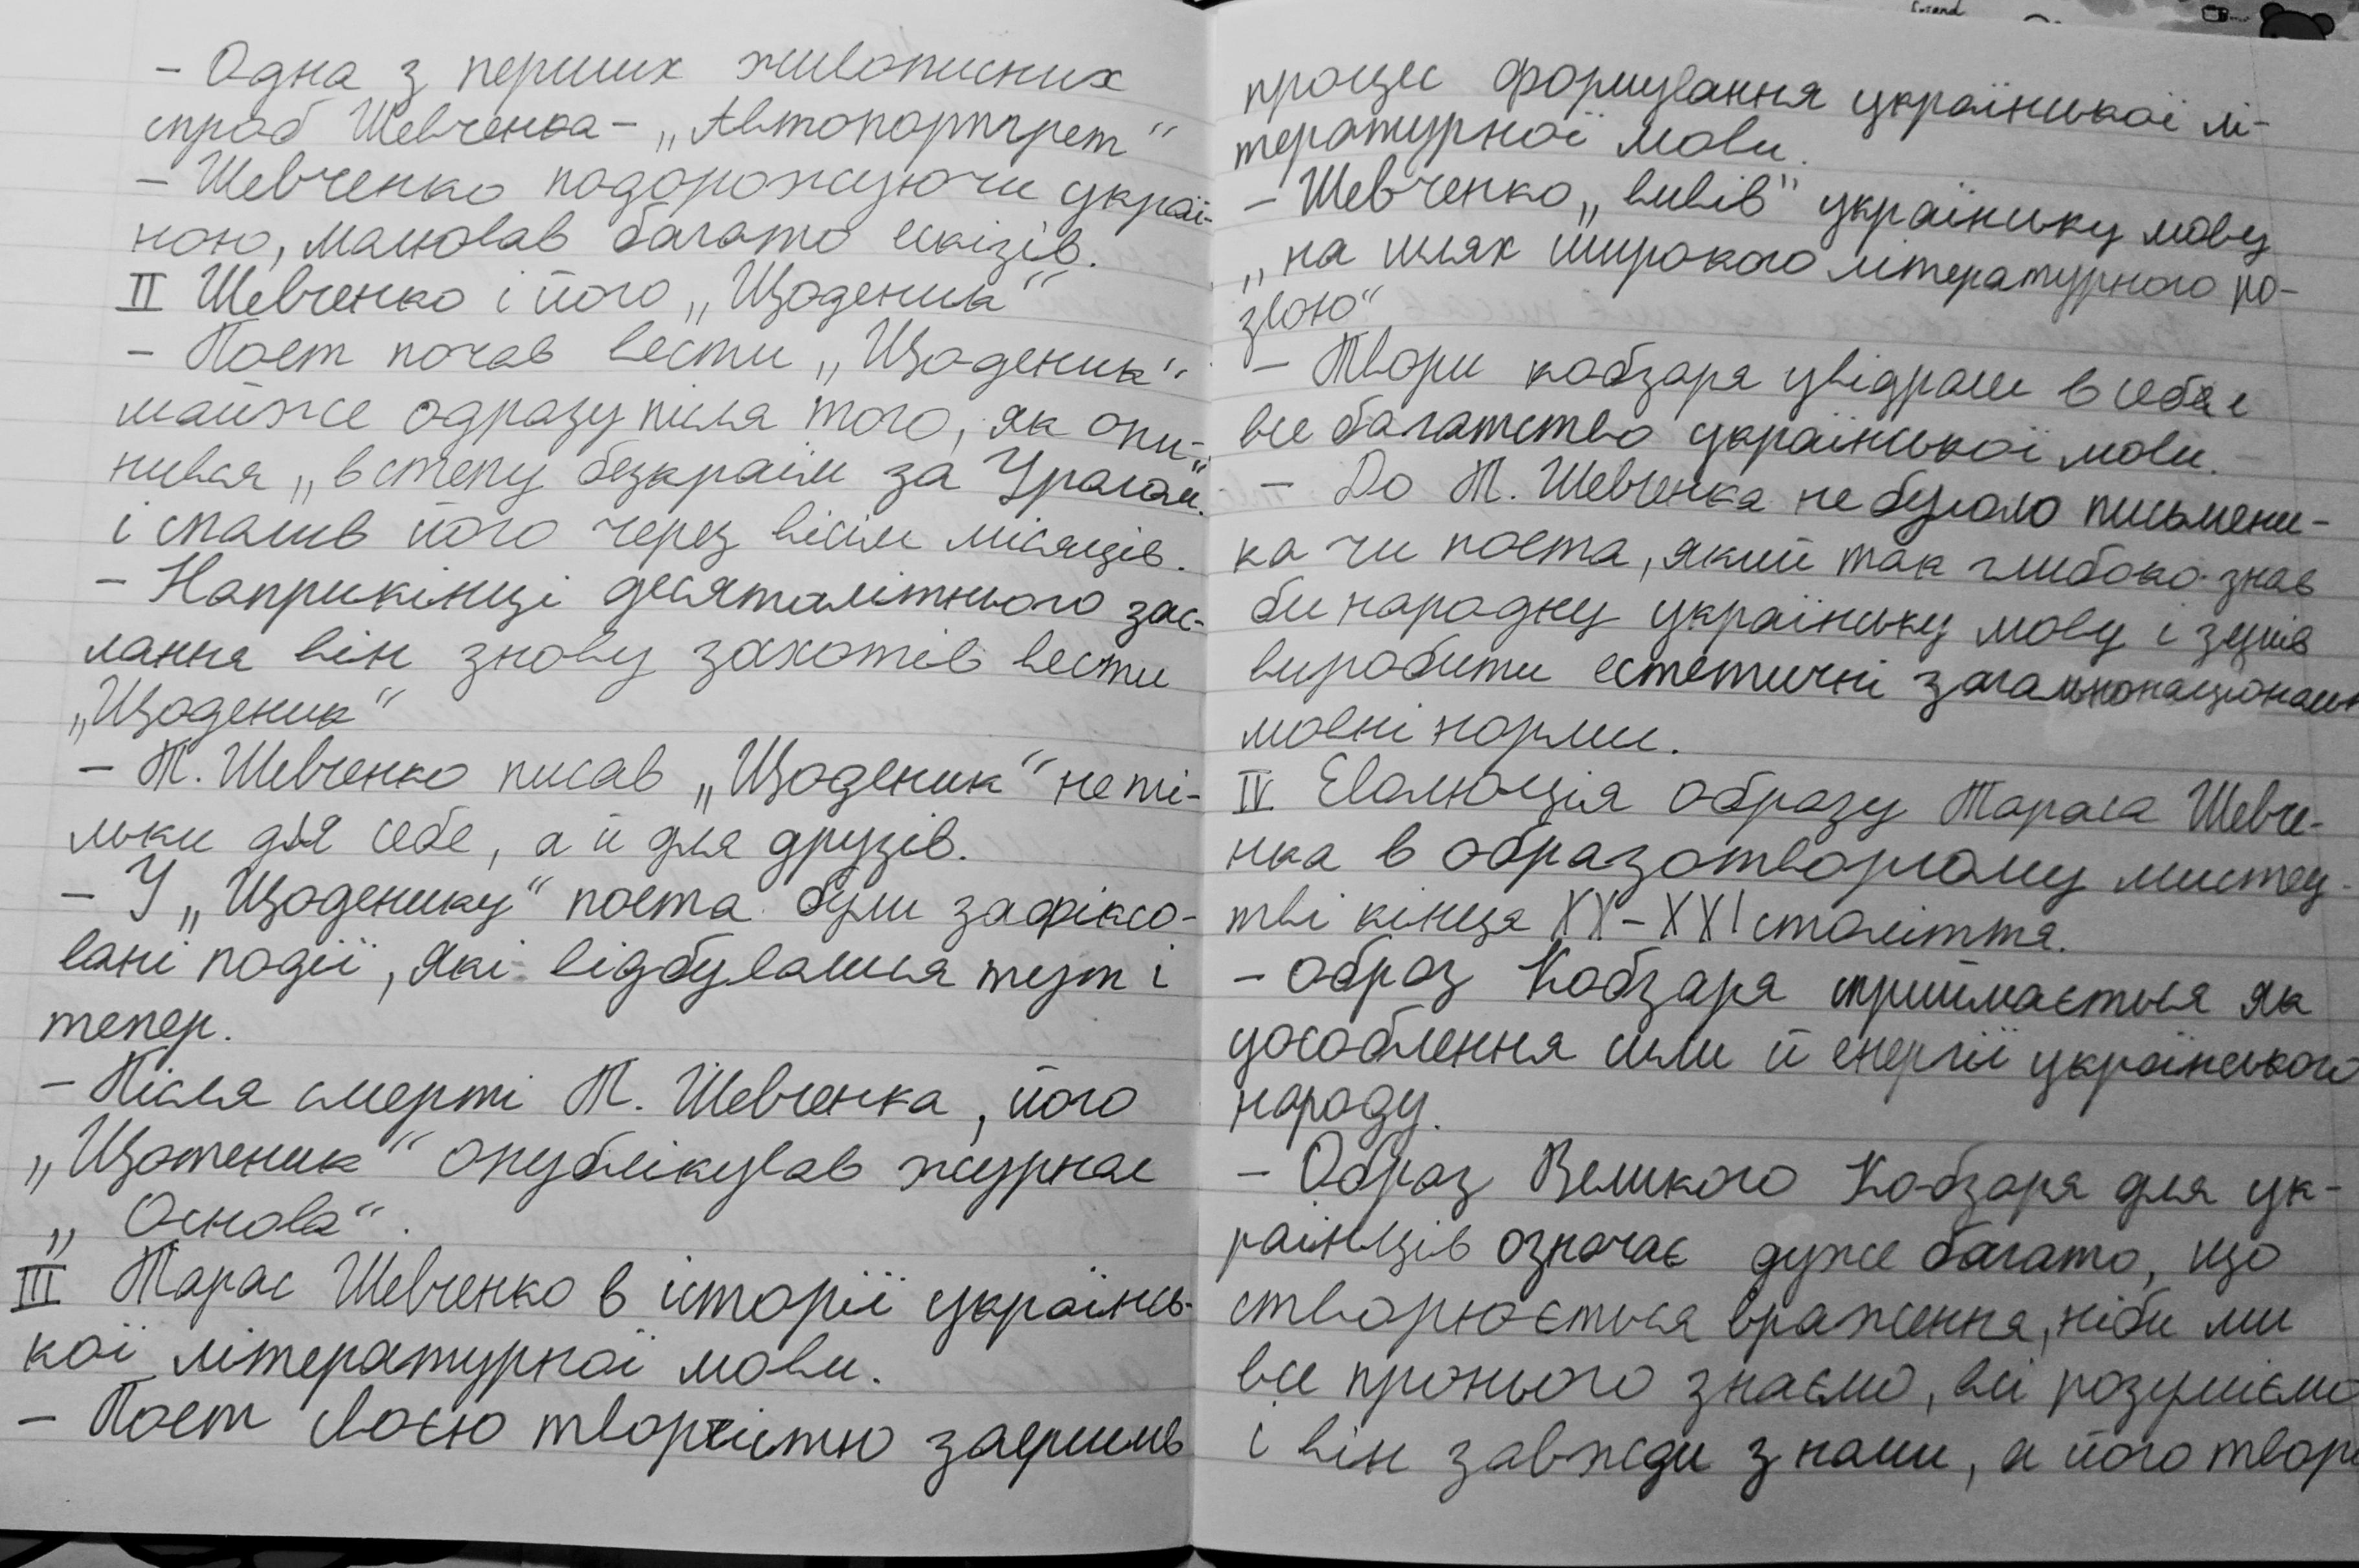 - Одна з перших живописних
спроб Шевченка - „Автопортрет"
- Шевченко подорожуючи украї-
ною, малював багато ескізів.
II Шевченко і його „Щоденик"
- Поет почав вести „Щоденик"
майже одразу після того, як опи-
нився „в степу безкраїм за Уралом"
і спалив його через вісім місяців.
- Наприкінці десятилітнього зас-
лання він знову захотів вести
„Щоденик"
- Т. Шевченко писав „Щоденик" не ті-
льки для себе, а й для друзів.
- У „Щоденику" поета були зафіксо-
вані події, які відбувалися тут і
тепер.
- Після смерті Т. Шевченка, його
„Щотеник" опублікував журнал
„Основа".
III Тарас Шевченко в історії українсь-
кої літературної мови.
- Поет своєю творчістю завршив
процес формування української лі-
тературної мови.
- Шевченко „вивів" українську мову
„на шлях широкого літературного ро-
звою"
- Твори кобзаря увідрали в себе
все багатство української мови.
- До Т. Шевченка не було письмени-
ка чи поета, який так глибоко знав
би народну українську мову і зумів
виробити естетичні загальнонаціональн
мовні норми.
IV Еволюція образу Тараса Шевче-
нка в образотворчому мистец-
тві кінця XX-XXI століття.
- Образ Кобзаря сприймається як
уособлення сили й енергії українського
народу.
- Образ Великого Кобзаря для ук-
раїнців означає дуже багато, що
створюється враження, ніби ми
все про нього знаємо, всі розуміємо
і він завжди з нами, а його твори